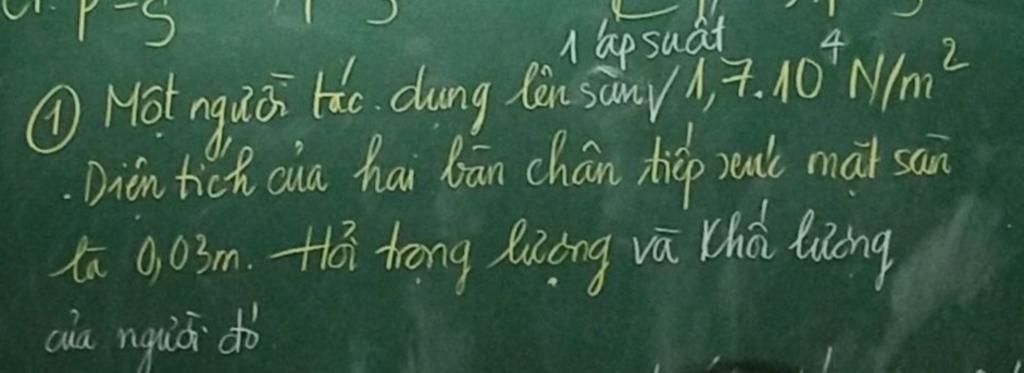 p = S
1 áp suất
① Một người tác dụng lên sàn √ 1,7.10⁴ N/m²
. Diện tích của hai bàn chân tiếp xúc mặt sàn
là 0,03m. Hỏi trọng lượng và khối lượng
của người đó